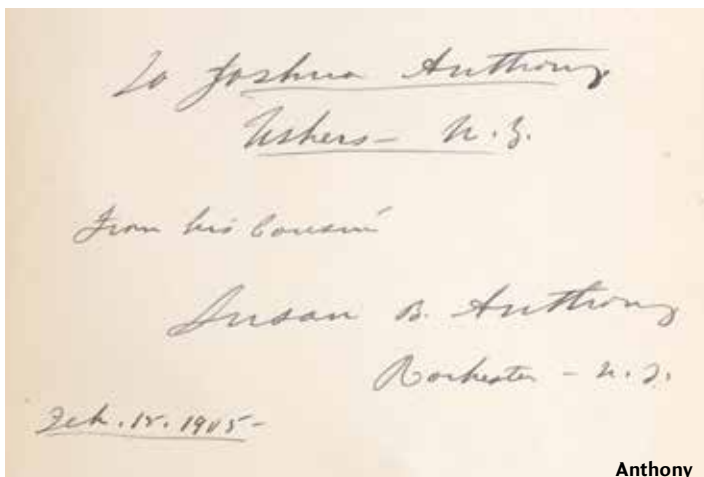 To Joshua Anthony
Ushers - N.Y.
From his Cousin
Susan B. Anthony
Rochester - N.Y.
Feb. 15. 1905 -
Anthony